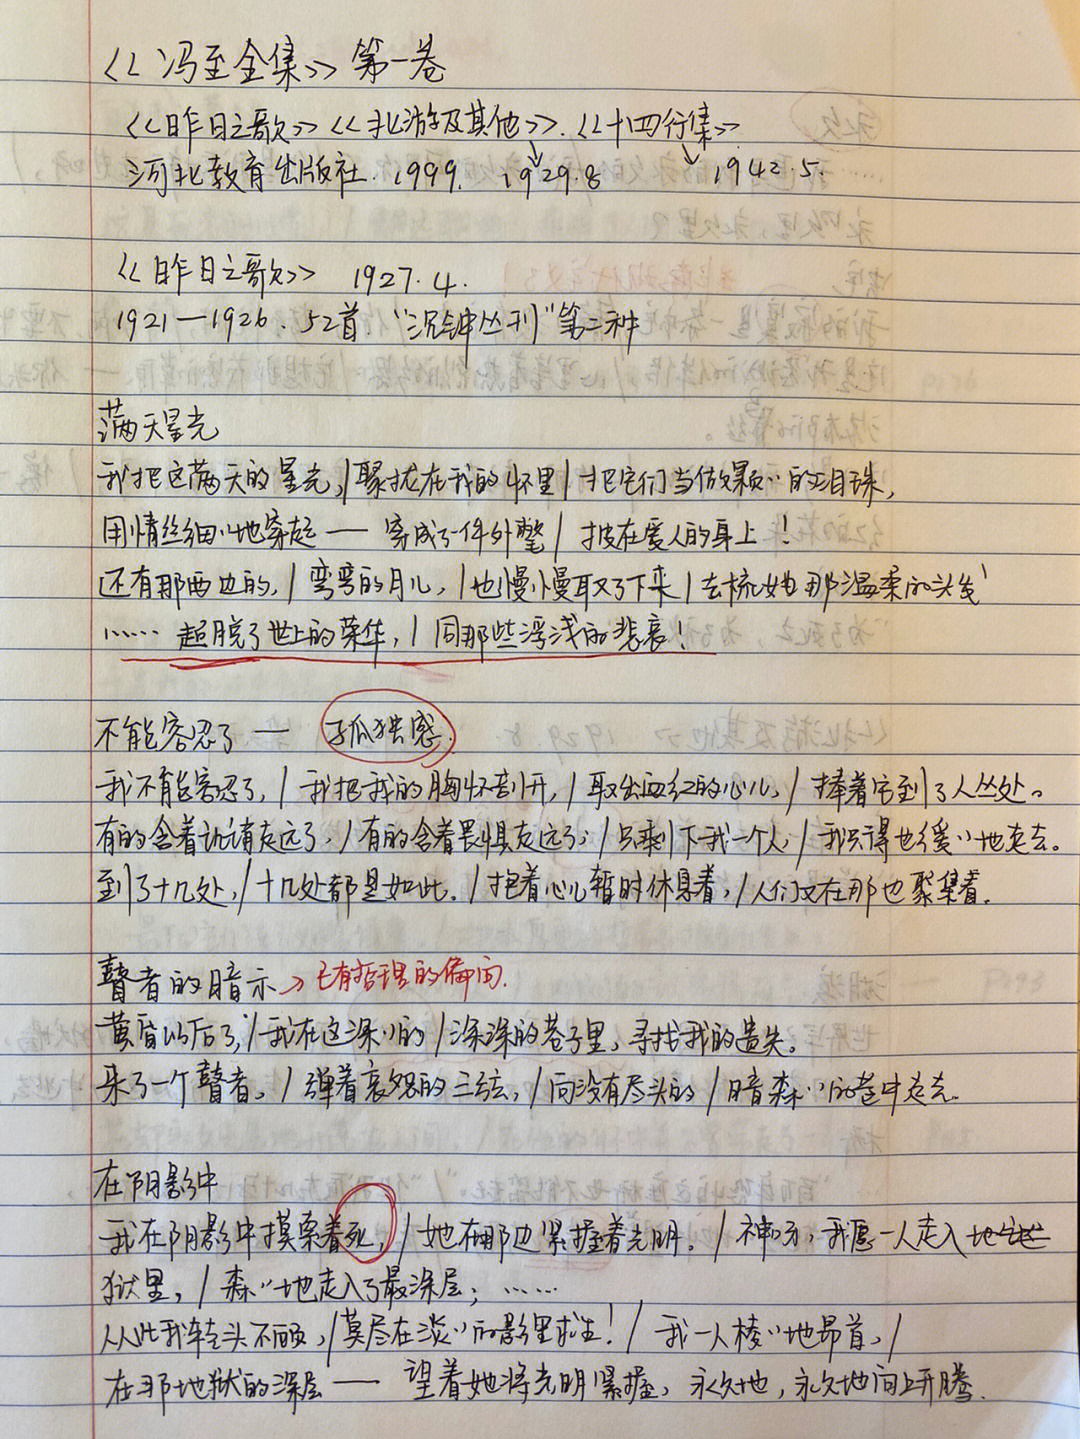 《冯至全集》第一卷
《昨日之歌》《北游及其他》.《十四行集》
河北教育出版社. 1999. 1929.8 1942.5.
《昨日之歌》 1927.4.
1921—1926. 52首 "沉钟丛刊"第二种
满天星光
我把这满天的星光,/聚拢在我的怀里/把它们当做颗〃的泪珠,
用情丝细〃地穿起——穿成了件外氅/披在爱人的身上!
还有那西边的,/弯弯的月儿,/也慢慢取了下来/去梳她那温柔的头发
……超脱了世上的荣华,/同那些浮浅的悲哀!
不能容忍了——孤独感.
我不能容忍了,/我把我的胸怀剖开,/取出血红的心儿,/捧着它到了人丛处。
有的含着讥诮走远了,/有的含着畏惧走远了;/只剩下我一个人,/我只得也缓〃地走去。
到了十几处,/十几处都是如此./抱着心儿暂时休息着,/人们又在那边聚集着.
瞽者的暗示→已有哲理的倾向.
黄昏以后了,/我在这深〃的/深深的巷子里,寻找我的遗失。
来了一个瞽者。/弹着哀怨的三弦,/向没有尽头的/暗森〃的巷中走去.
在阴影中
我在阴影中摸索着死,/她在那边紧握着光明。/神呀,我愿一人走入地
狱里,/森〃地走入了最深层;……
从此我转头不顾,/莫尽在淡〃的影里求生!/我一人棱〃地昂首,/
在那地狱的深层——望着她将光明紧握,永久地,永久地向上升腾.